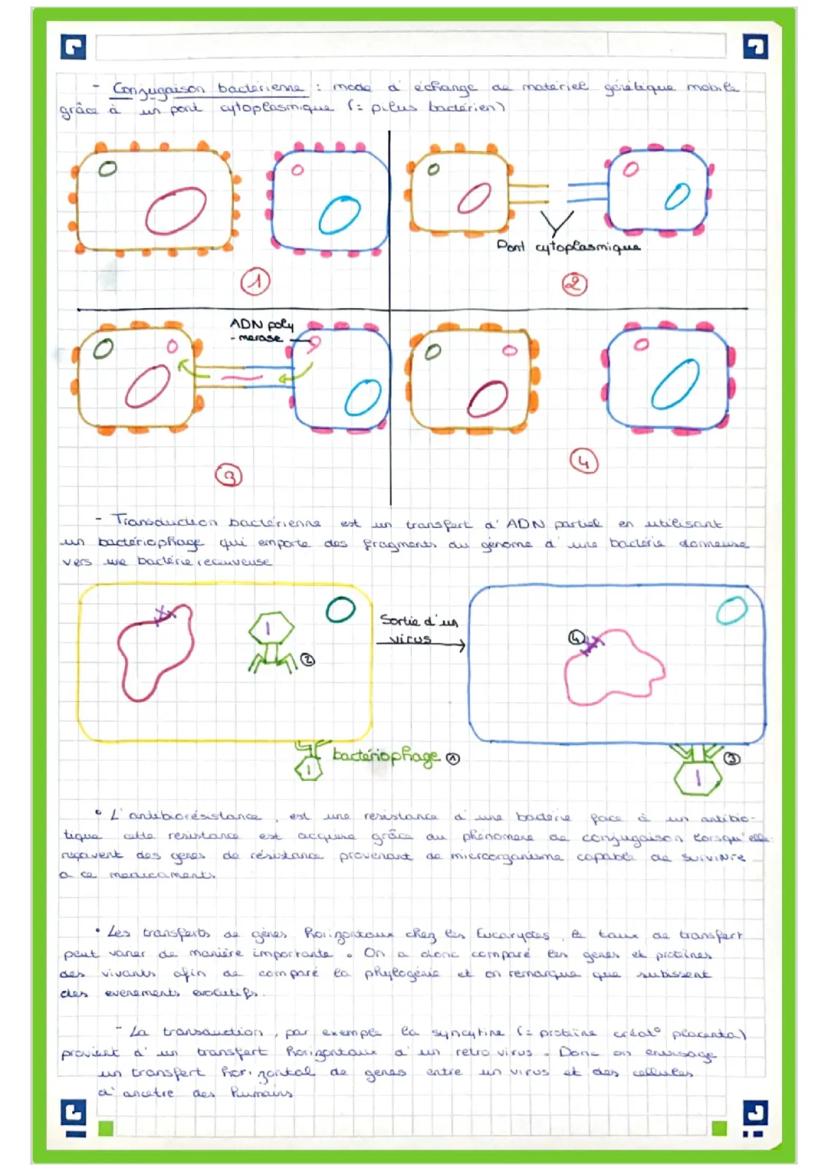 - Conjugaison bactérienne : mode d'échange de matériel génétique mobile
grâce à un pont cytoplasmique (= pilus bactérien)
1
2
Pont cytoplasmique
ADN poly
-merase
3
4
- Transduction bactérienne est un transfert d'ADN partiel en utilisant
un bactériophage qui emporte des fragments du génome d'une bactérie donneuse
vers une bactérie receveuse
Sortie d'un
virus
4
2
bactériophage 1
3
• L'antibiorésistance, est une resistance d'une bactérie face à un antibio-
tique cette resistance est acquise grâce au phénomere de conjugaison lorsqu'elle
reçoivent des genes de résistance provenant de microorganisme capable de
a ce medicaments
• Les transferts de gènes horizontaux chez les Eucaryotes, le taux de transfert
peut varier de manière importante. On a donc comparé les genes et protéines
des vivants afin de comparé la phylogénie et on remarque que subissent
des evenements evolutifs.
- La transduction, par exemple la syncytine (= protéine créat° placenta)
provient d'un transfert horizontaux d'un retro virus. Donc on envisage
un transfert horizontal de genes entre un virus et des cellules
d'ancetre des humains